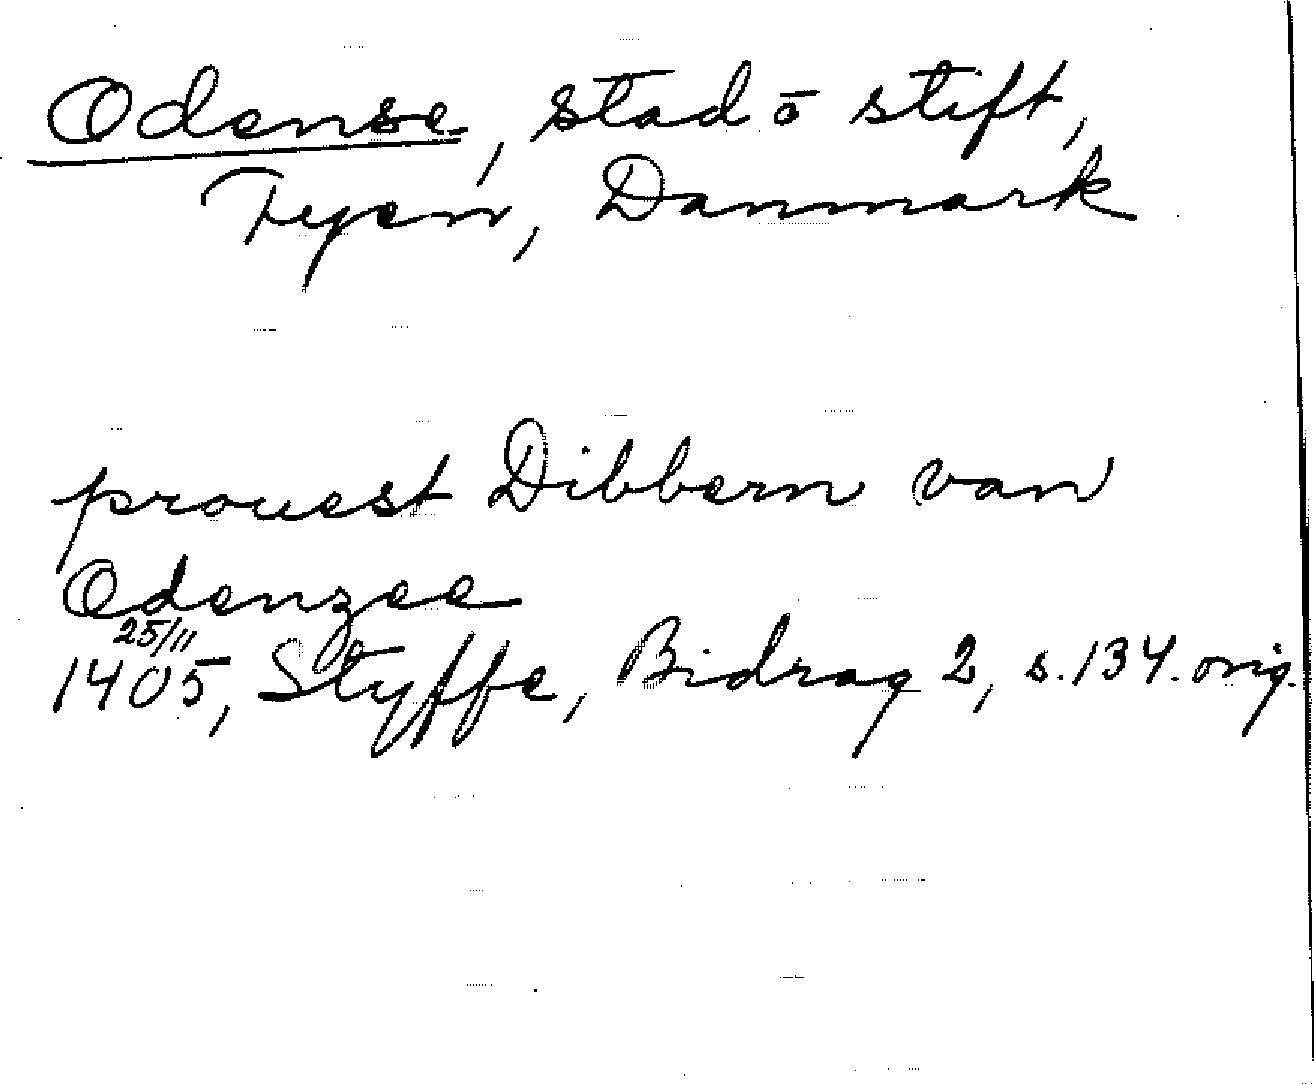 Odense, stad ō stift,
Fyen, Danmark
prouest Dibbern van
Odenzee
25/11
1405, Styffe, Bidrag 2, s. 134. orig.